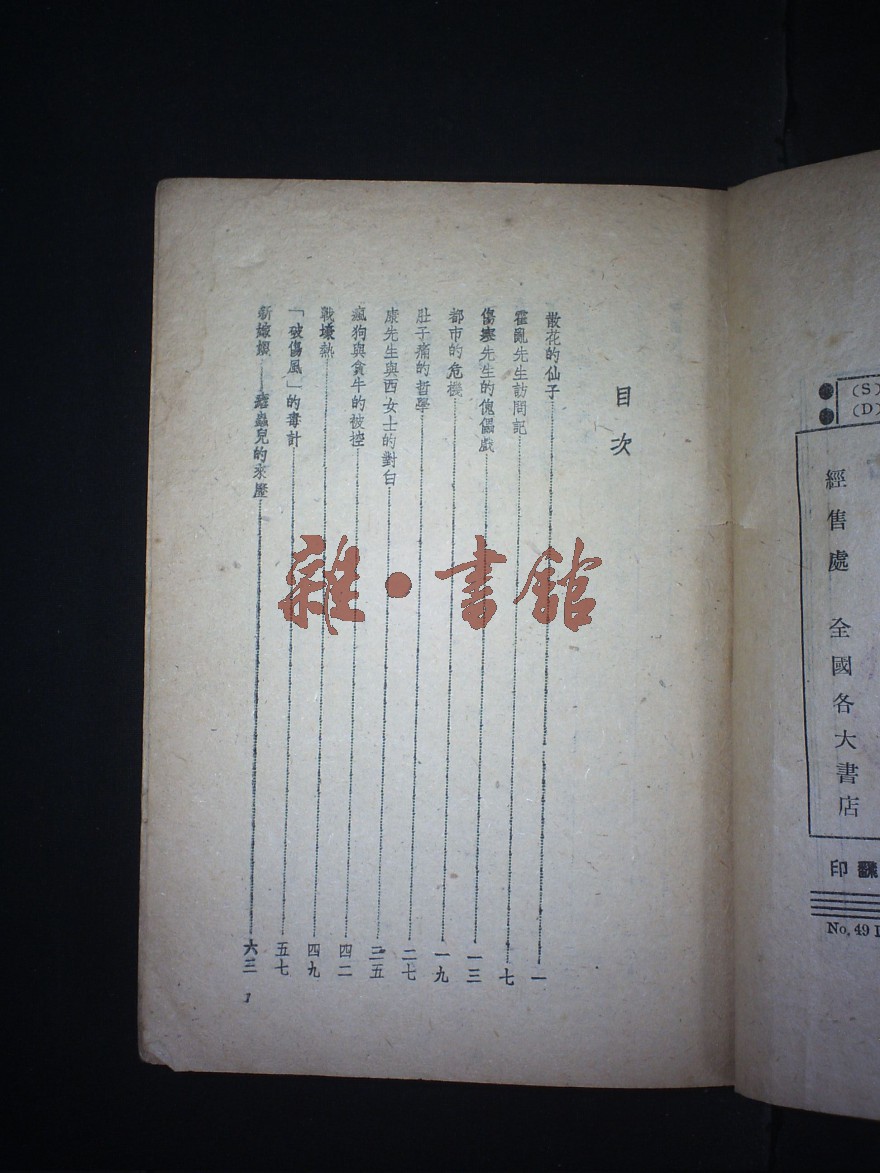 目次
散花的仙子 一
霍亂先生訪問記 七
傷寒先生的傀儡戲 一三
都市的危機 一九
肚子痛的哲學 二七
康先生與西女士的對白 三五
瘋狗與貪牛的被控 四二
戰壕熱 四九
「破傷風」的毒計 五七
新嫁娘 蟲兒的來歷 六三
1
雜·書舘
(S)
(D)
經售處 全國各大書店
印
No. 49